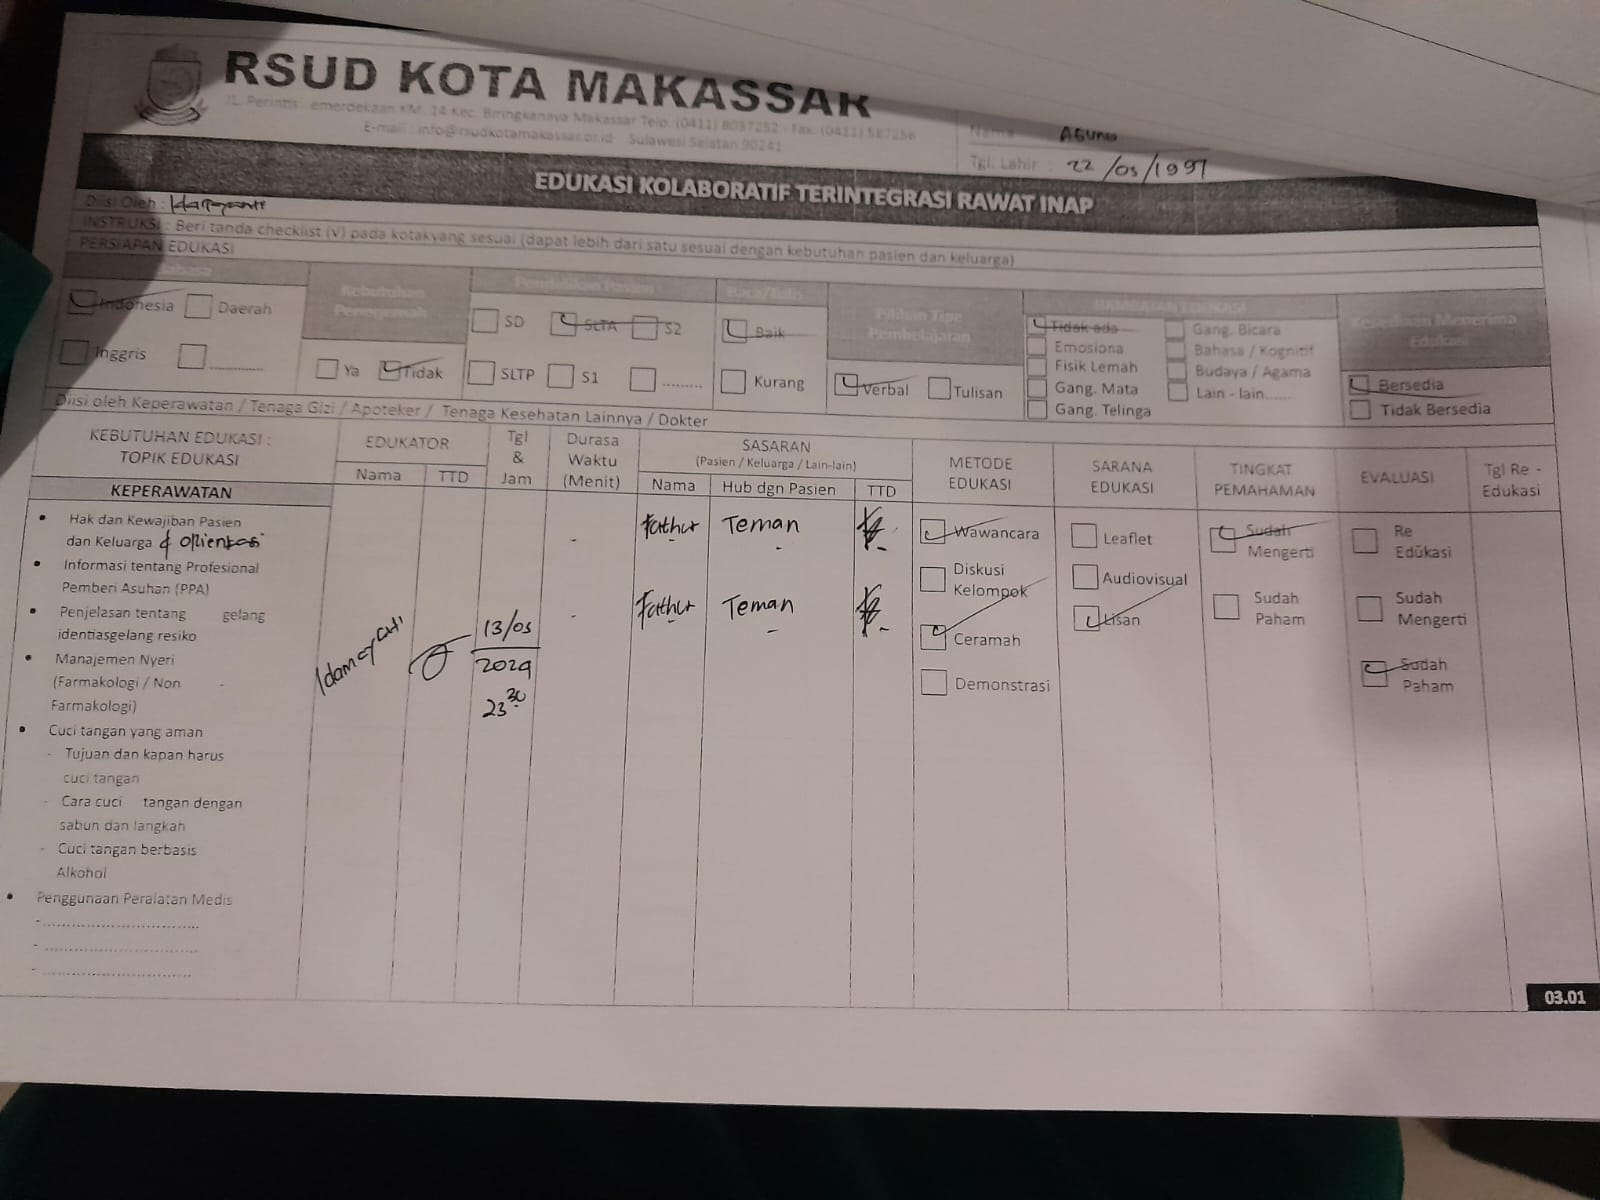 RSUD KOTA MAKASSAR
JL. Perintis emerdekaan KM. 14 Kec. Biringkanaya Makassar Telp. (0411) 8037252 - Fax. (0411) 587256
E-mail : info@rsudkotamakassar.or.id Sulawesi Selatan 90241
Nama AGUNG
Tgl. Lahir : 22/05/1997
EDUKASI KOLABORATIF TERINTEGRASI RAWAT INAP
Diisi Oleh :
INSTRUKSI : Beri tanda checklist (V) pada kotakyang sesuai (dapat lebih dari satu sesuai dengan kebutuhan pasien dan keluarga)
PERSIAPAN EDUKASI
Bahasa
Indonesia Daerah
Inggris .............
Kebutuhan
Penerjemah
Ya Tidak
Pendidikan Pasien
SD SLTA S2
SLTP S1 .........
Baca/Tulis
Baik
Kurang
Pilihan Tipe
Pembelajaran
Verbal Tulisan
HAMBATAN EDUKASI
Tidak ada Gang. Bicara
Emosiona Bahasa / Kognitif
Fisik Lemah Budaya / Agama
Gang. Mata Lain - lain......
Gang. Telinga
Kesediaan Menerima
Edukasi
Bersedia
Tidak Bersedia
Diisi oleh Keperawatan / Tenaga Gizi / Apoteker / Tenaga Kesehatan Lainnya / Dokter
KEBUTUHAN EDUKASI :
TOPIK EDUKASI
EDUKATOR
Nama TTD
Tgl
&
Jam
Durasa
Waktu
(Menit)
SASARAN
(Pasien / Keluarga / Lain-lain)
Nama Hub dgn Pasien TTD
METODE
EDUKASI
SARANA
EDUKASI
TINGKAT
PEMAHAMAN
EVALUASI
Tgl Re -
Edukasi
KEPERAWATAN
• Hak dan Kewajiban Pasien
dan Keluarga & orientasi
• Informasi tentang Profesional
Pemberi Asuhan (PPA)
• Penjelasan tentang gelang
identiasgelang resiko
• Manajemen Nyeri
(Farmakologi / Non -
Farmakologi)
• Cuci tangan yang aman
- Tujuan dan kapan harus
cuci tangan
- Cara cuci tangan dengan
sabun dan langkah
- Cuci tangan berbasis
Alkohol
• Penggunaan Peralatan Medis
-................................
-................................
-..............................
13/05
2024
23 30
-
-
Fathur Teman
Fathur Teman
Wawancara
Diskusi
Kelompok
Ceramah
Demonstrasi
Leaflet
Audiovisual
Lisan
Sudah
Mengerti
Sudah
Paham
Re
Edukasi
Sudah
Mengerti
Sudah
Paham
03.01